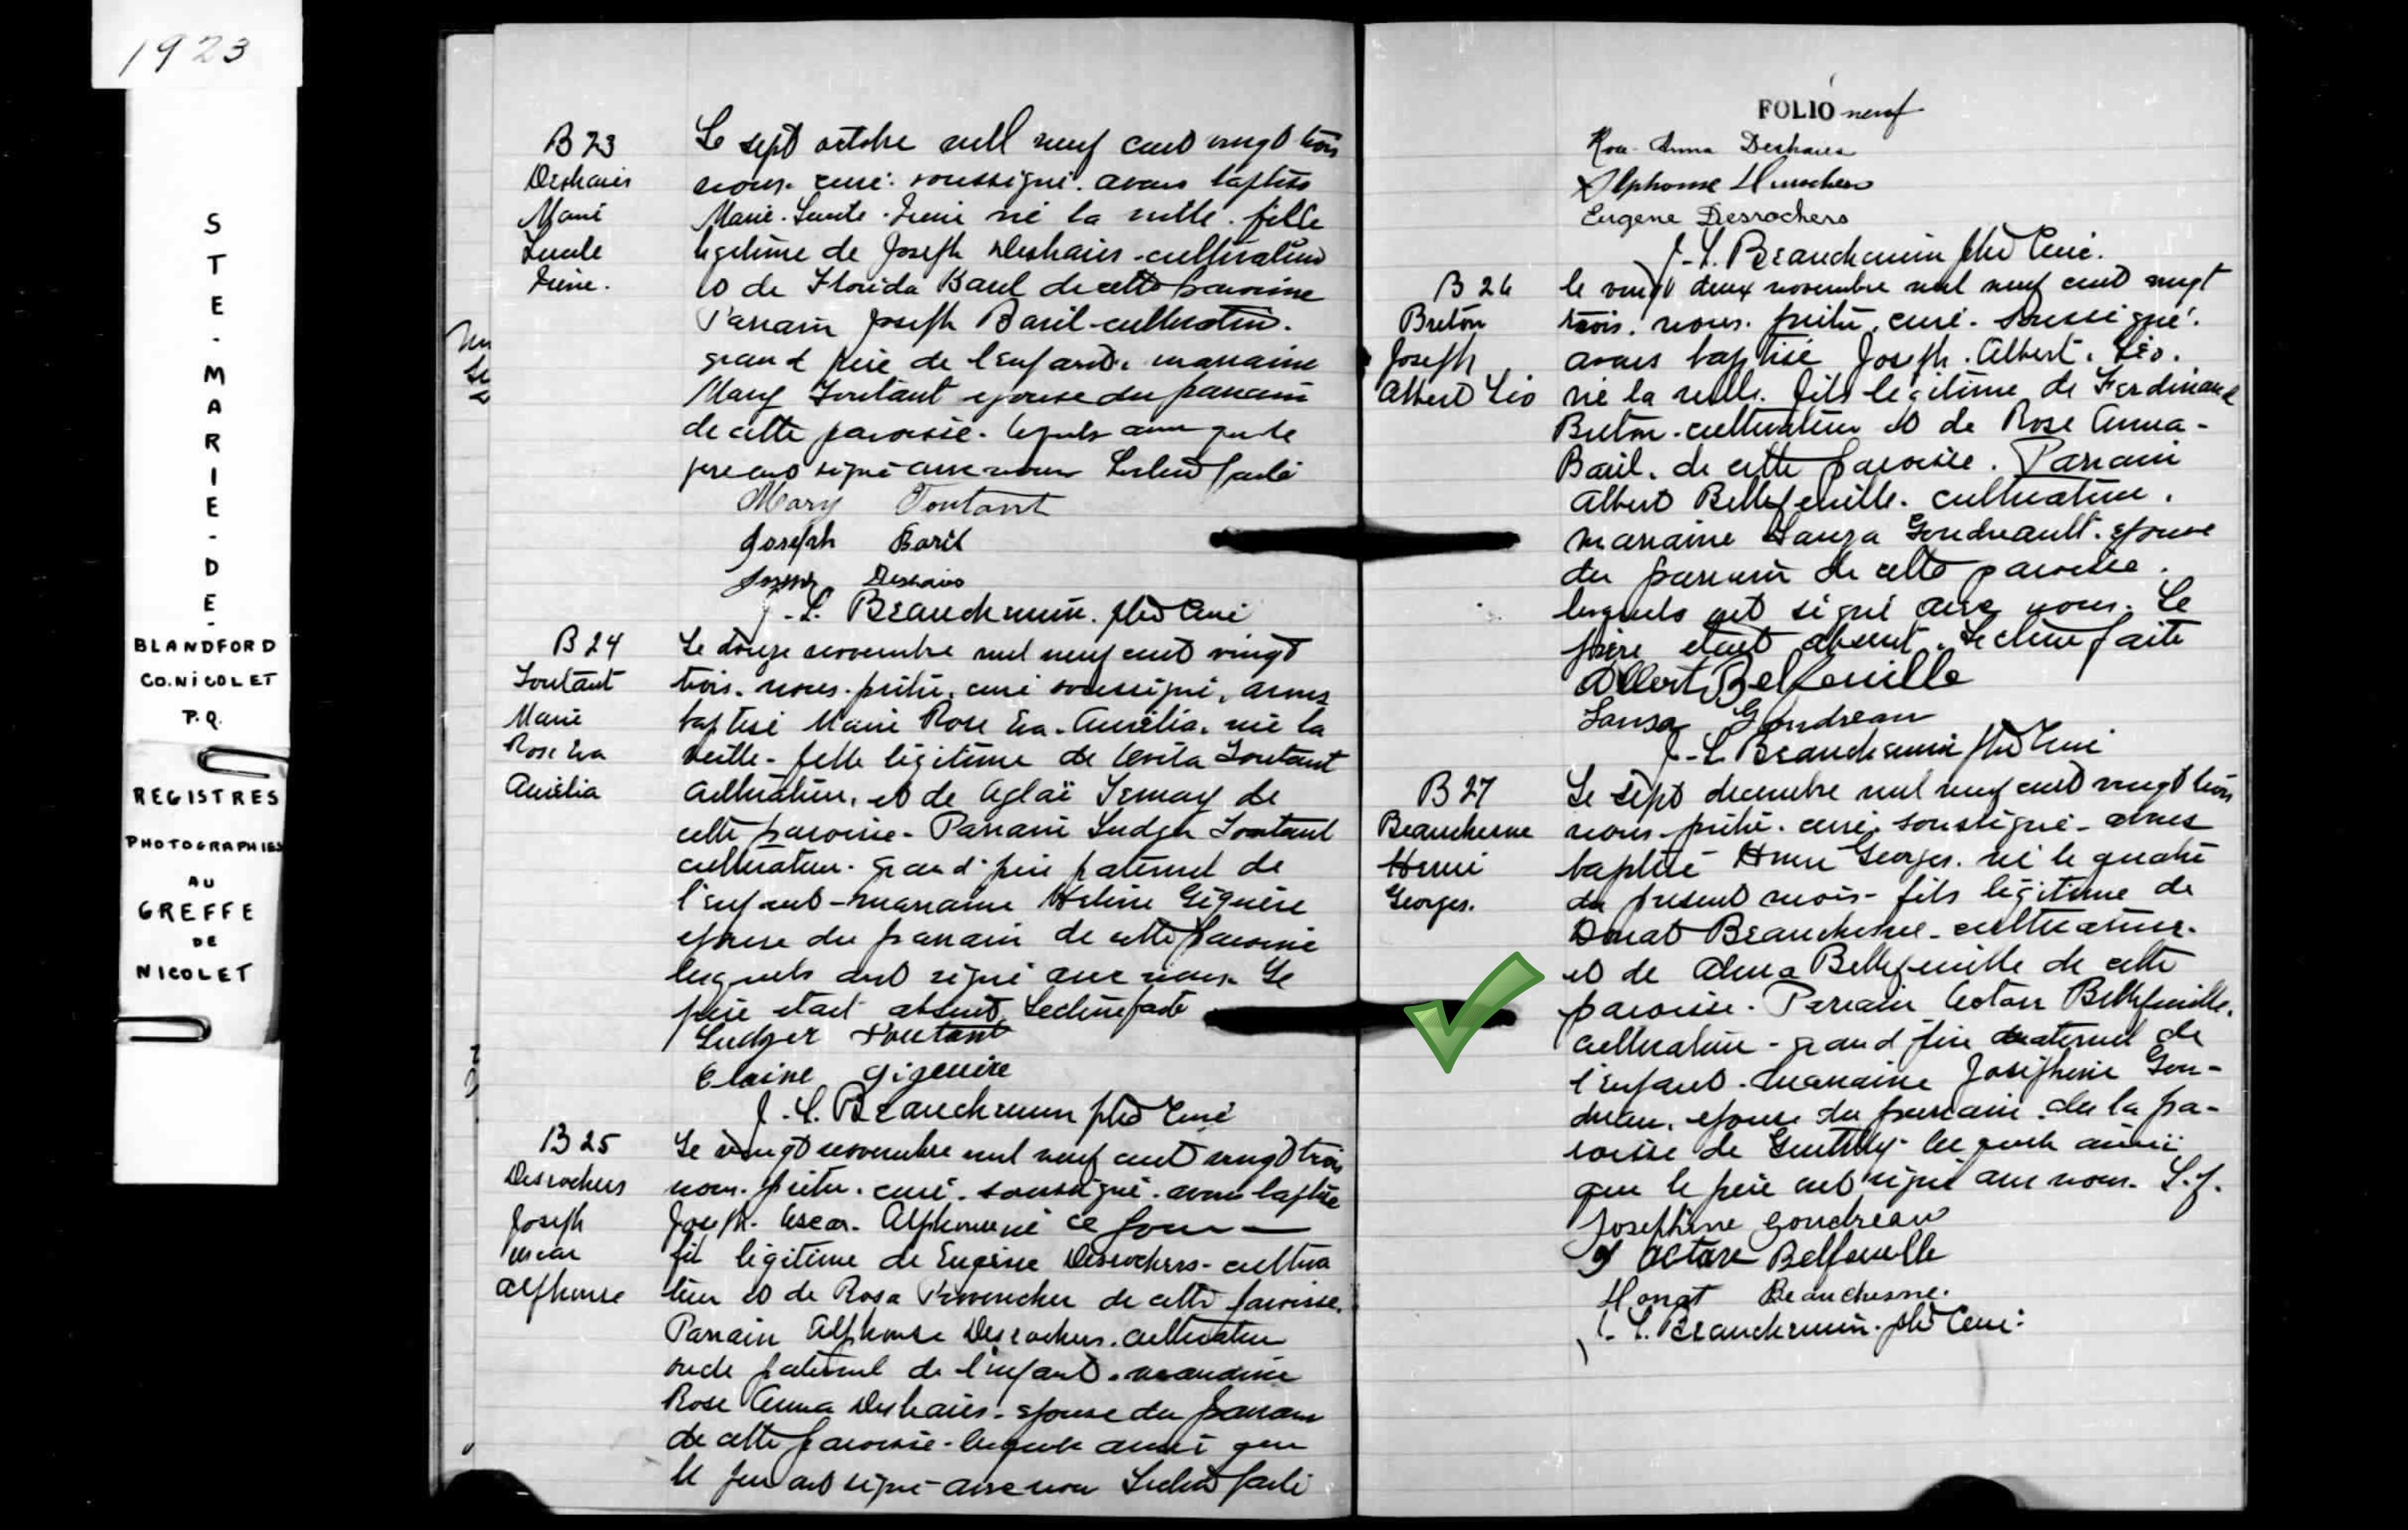 1923
STE-MARIE-DE-
BLANDFORD
CO. NICOLET
P.Q.
REGISTRES
PHOTOGRAPHIES
AU
GREFFE
DE
NICOLET
B 23
Deshaies
Marie
Lucile
Irène.
Le sept octobre mil neuf cent vingt trois
nous. curé. soussigné. avons baptisé
Marie. Irène né la veille. fille
légitime de Joseph Deshaies - cultivateur
et de Florida Baril de cette paroisse
Parrain Joseph Baril - cultivateur.
grand père de l'enfant. marraine
Mary Toutant épouse du parrain
de cette paroisse. lesquels ainsi que le
père ont signé avec nous Lecture faite
Mary Toutant
Joseph Baril
Joseph Deshaies
J.-L. Beauchemin. ptre Curé
B 24
Toutant
Marie
Rose Eva
Aurélia
Le douze novembre mil neuf cent vingt
trois. nous. prêtre, curé soussigné, avons
baptisé Marie Rose Eva. Aurélia. née la
veille - fille légitime de Toutant
cultivateur. et de Aglaï Lemay de
cette paroisse - Parrain Ludger Toutant
cultivateur. grand'père paternel de
l'enfant - marraine Giguère
épouse du parrain de cette paroisse
lesquels ont signé avec nous. Le
père était absent. Lecture faite
Ludger Toutant
Elaine Gigeuire
J.-L. Beauchemin ptre Curé
B 25
Desrochers
Joseph
oscar
Alphonse
Le vingt novembre mil neuf cent vingt trois
nous. prêtre. curé. soussigné. avons baptisé
Joseph. Oscar. Alphonse né ce jour —
fils légitime de Eugène Desrochers - cultiva
teur et de Rosa Provencher de cette paroisse.
Parrain Alphonse Desrochers. cultivateur
oncle paternel de l'enfant. marraine
Rose Anna Deshaies - épouse du parrain
de cette paroisse - lesquels ainsi que
le père ont signé avec nous Lecture faite
FOLIO neuf
Rose-Anna Deshaies
Alphonse Desrochers
Eugene Desrochers
J.-L. Beauchemin ptre Curé.
B 26
Breton
Joseph
Albert Léo
le vingt deux novembre mil neuf cent vingt
trois. nous. prêtre, curé - soussigné.
avons baptisé Joseph. Albert. Léo.
né la veille. fils légitime de Ferdinand
Breton - cultivateur et de Rose Anna -
Baril. de cette paroisse. Parrain
Albert Bellefeuille. cultivateur.
marraine Lauza Goudreault. épouse
du parrain de cette paroisse.
lesquels ont signé avec nous. Le
père était absent. Lecture faite
Albert Belfeuille
Lausa Goudreau
J.-L. Beauchemin ptre Curé
B 27
Beauchesne
Henri
Georges.
Le sept décembre mil neuf cent vingt trois
nous - prêtre. curé. soussigné - avons
baptisé Henri Georges. né le quatre
du présent mois - fils légitime de
Donat Beauchesne - cultivateur.
et de Alma Bellefeuille de cette
paroisse. Parrain Bellefeuille.
cultivateur - grand père maternel de
l'enfant. marraine Joséphine Gou-
dreau. épouse du parrain. de la pa-
roisse de Gentilly - lesquels ainsi
que le père ont signé avec nous. L.f.
Josephine Goudreau
Octave Belfeuille
Donat Beauchesne.
J.-L. Beauchemin. ptre Curé.